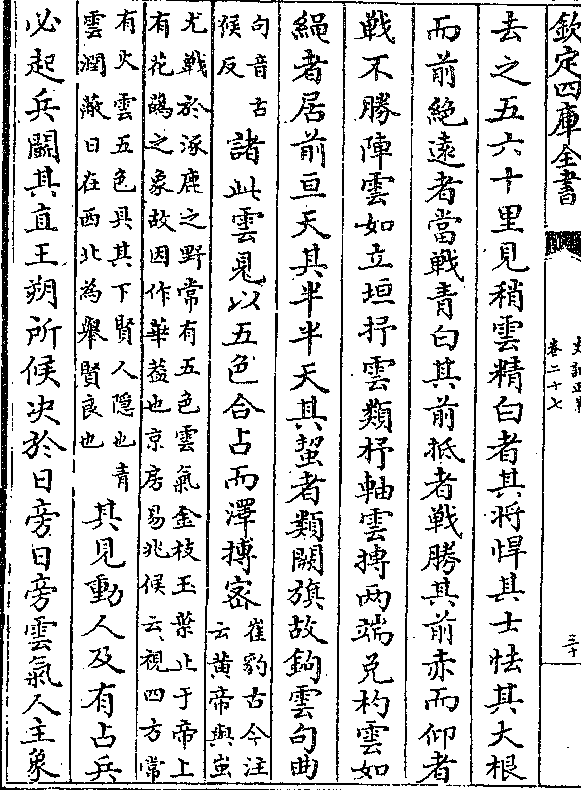 欽定四庫全書
卷二十七
三十
去之五六十里見稍雲精白者其將悍其士怯其大根
而前絶遠者當戰青白其前抵者戰勝其前赤而仰者
戰不勝陣雲如立垣抒雲類抒軸雲摶两端兑杓雲如
繩者居前亘天其半半天其蛪者類闕旗故鉤雲句曲
句音古
候反
諸此雲見以五色合占而澤摶宻
崔豹古今注
云黄帝與蚩
尤戰於涿鹿之野常有五色雲氣金枝玉葉止于帝上
有花蘤之象故因作華葢也京房易兆候云視四方常
有火雲五色具其下賢人隠也青
雲潤蔽日在西北為舉賢良也
其見動人及有占兵
必起兵鬭其直王朔所候决於日旁日旁雲氣人主象